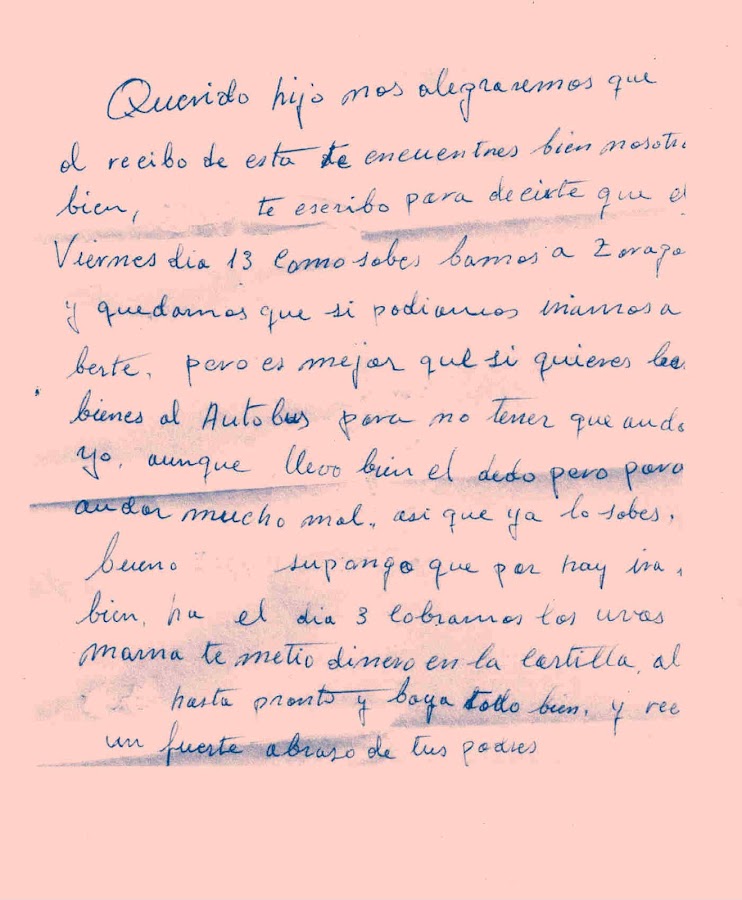 Querido hijo nos alegraremos que
al recibo de esta te encuentres bien nosotr
bien, te escribo para decirte que el
Viernes dia 13 como sabes bamos a Zarago
y quedamos que si podiamos iriamos a
berte, pero es mejor que si quieres
bienes al Autobus para no tener que anda
yo, aunque llevo bien el dedo pero para
andar mucho mal, asi que ya lo sabes,
bueno supongo que por hay ira,
bien, ha el dia 3 cobramos las uvas
mama te metio dinero en la cartilla, al
hasta pronto y baya todo bien, y rec
un fuerte abraso de tus padres